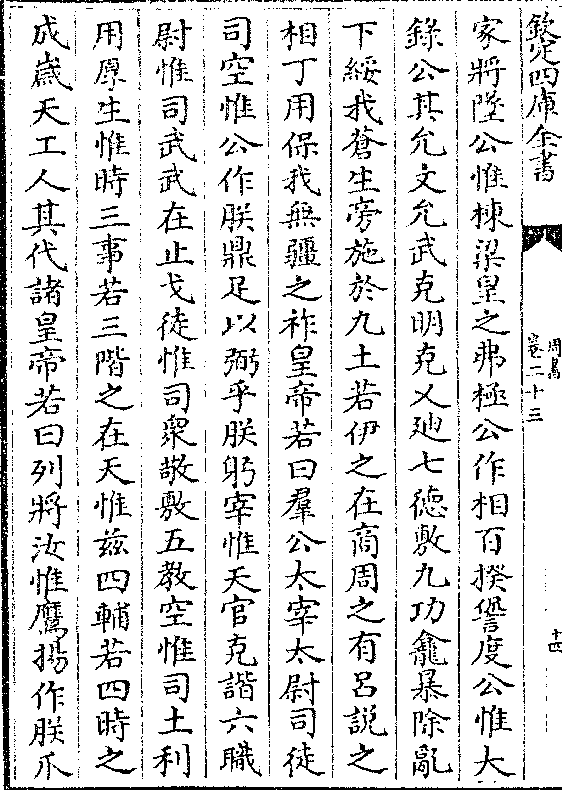 欽定四庫全書
周書
卷二十三
十四
家將墜公惟棟梁皇之弗極公作相百揆諐度公惟大
錄公其允文允武克明克乂廸七德敷九功龕暴除亂
下綏我蒼生旁施於九土若伊之在商周之有呂説之
相丁用保我無疆之祚皇帝若曰羣公太宰太尉司徒
司空惟公作朕鼎足以弼乎朕躬宰惟天官克諧六職
尉惟司武武在止戈徒惟司衆敬敷五教空惟司土利
用厚生惟時三事若三階之在天惟兹四輔若四時之
成嵗天工人其代諸皇帝若曰列將汝惟鷹揚作朕爪